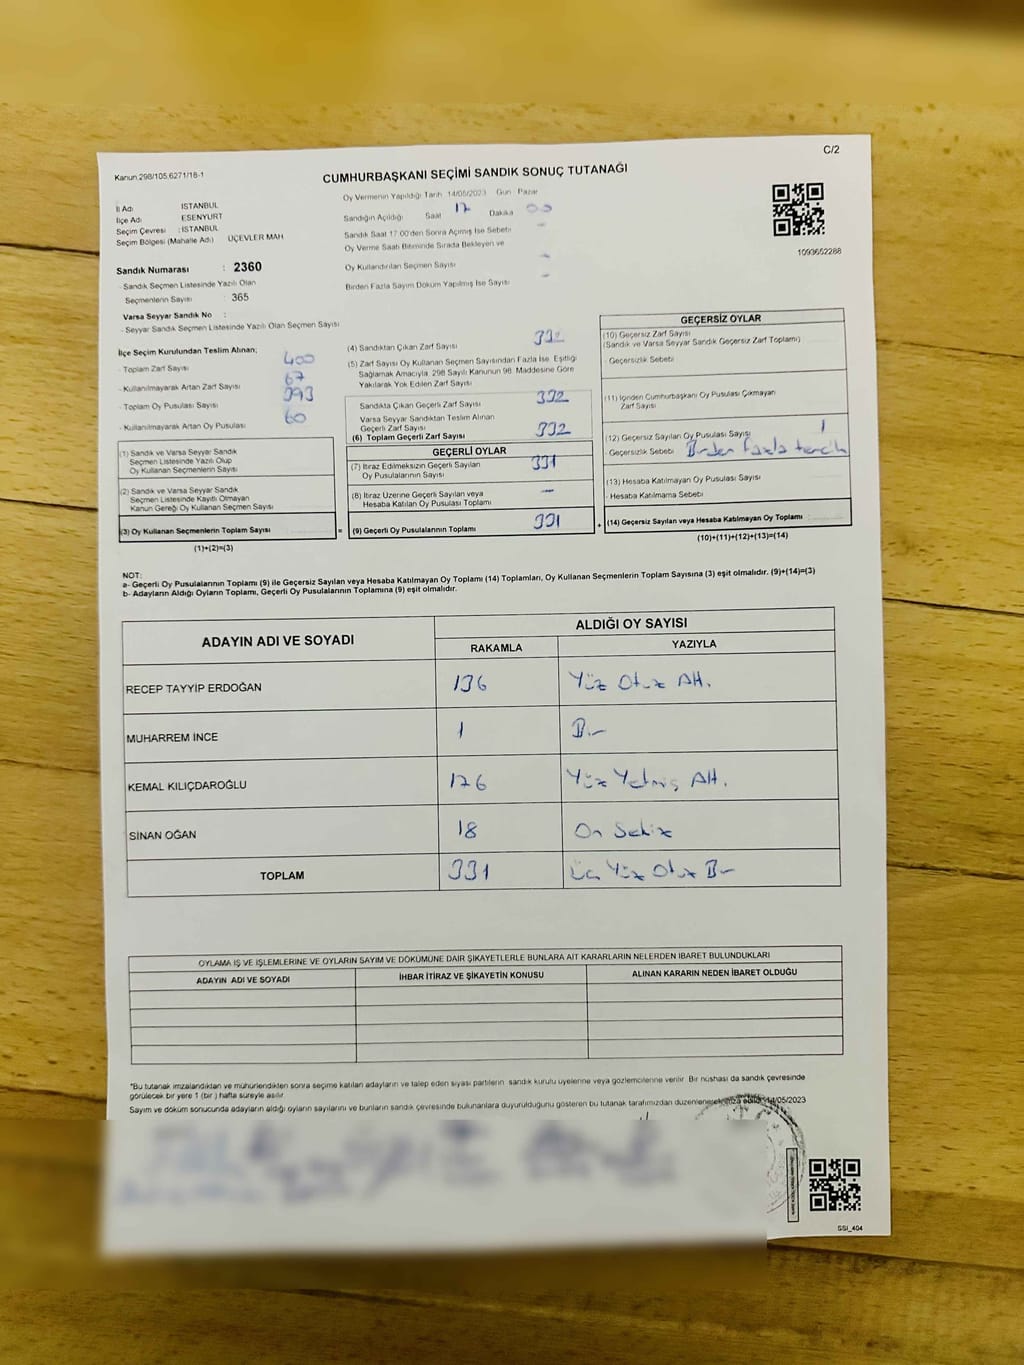 C/2
Kanun.298/105,6271/18-1
CUMHURBAŞKANI SEÇİMİ SANDIK SONUÇ TUTANAĞI
İl Adı : İSTANBUL
İlçe Adı : ESENYURT
Seçim Çevresi : İSTANBUL
Seçim Bölgesi (Mahalle Adı) ÜÇEVLER MAH
Sandık Numarası : 2360
- Sandık Seçmen Listesinde Yazılı Olan
Seçmenlerin Sayısı : 365
Varsa Seyyar Sandık No :
- Seyyar Sandık Seçmen Listesinde Yazılı Olan Seçmen Sayısı
Oy Vermenin Yapıldığı Tarih 14/05/2023 Gün : Pazar
Sandığın Açıldığı Saat 17 Dakika 00
Sandık Saat 17:00'den Sonra Açılmış İse Sebebi -
Oy Verme Saati Bitiminde Sırada Bekleyen ve
Oy Kullandırılan Seçmen Sayısı -
Birden Fazla Sayım Döküm Yapılmış İse Sayısı -
1093652288
İlçe Seçim Kurulundan Teslim Alınan;
- Toplam Zarf Sayısı 400
- Kullanılmayarak Artan Zarf Sayısı 67
- Toplam Oy Pusulası Sayısı 393
- Kullanılmayarak Artan Oy Pusulası 60
(1) Sandık ve Varsa Seyyar Sandık
Seçmen Listesinde Yazılı Olup
Oy Kullanan Seçmenlerin Sayısı
(2) Sandık ve Varsa Seyyar Sandık
Seçmen Listesinde Kayıtlı Olmayan
Kanun Gereği Oy Kullanan Seçmen Sayısı
(3) Oy Kullanan Seçmenlerin Toplam Sayısı =
(1)+(2)=(3)
(4) Sandıktan Çıkan Zarf Sayısı 332
(5) Zarf Sayısı Oy Kullanan Seçmen Sayısından Fazla İse, Eşitliği
Sağlamak Amacıyla, 298 Sayılı Kanunun 98. Maddesine Göre
Yakılarak Yok Edilen Zarf Sayısı
Sandıkta Çıkan Geçerli Zarf Sayısı 332
Varsa Seyyar Sandıktan Teslim Alınan
Geçerli Zarf Sayısı
(6) Toplam Geçerli Zarf Sayısı 332
GEÇERLİ OYLAR
(7) İtiraz Edilmeksizin Geçerli Sayılan
Oy Pusulalarının Sayısı 331
(8) İtiraz Üzerine Geçerli Sayılan veya
Hesaba Katılan Oy Pusulası Toplamı -
(9) Geçerli Oy Pusulalarının Toplamı 331 +
GEÇERSİZ OYLAR
(10) Geçersiz Zarf Sayısı
(Sandık ve Varsa Seyyar Sandık Geçersiz Zarf Toplamı)
- Geçersizlik Sebebi
(11) İçinden Cumhurbaşkanı Oy Pusulası Çıkmayan
Zarf Sayısı
(12) Geçersiz Sayılan Oy Pusulası Sayısı 1
- Geçersizlik Sebebi Birden fazla tercih
(13) Hesaba Katılmayan Oy Pusulası Sayısı
- Hesaba Katılmama Sebebi
(14) Geçersiz Sayılan veya Hesaba Katılmayan Oy Toplamı
(10)+(11)+(12)+(13)=(14)
NOT:
a- Geçerli Oy Pusulalarının Toplamı (9) ile Geçersiz Sayılan veya Hesaba Katılmayan Oy Toplamı (14) Toplamları, Oy Kullanan Seçmenlerin Toplam Sayısına (3) eşit olmalıdır. (9)+(14)=(3)
b- Adayların Aldığı Oyların Toplamı, Geçerli Oy Pusulalarının Toplamına (9) eşit olmalıdır.
ADAYIN ADI VE SOYADI ALDIĞI OY SAYISI
RAKAMLA YAZIYLA
RECEP TAYYİP ERDOĞAN 136 Yüz Otuz Altı
MUHARREM İNCE 1 Bir
KEMAL KILIÇDAROĞLU 176 Yüz Yetmiş Altı
SİNAN OĞAN 18 On Sekiz
TOPLAM 331 Üç Yüz Otuz Bir
OYLAMA İŞ VE İŞLEMLERİNE VE OYLARIN SAYIM VE DÖKÜMÜNE DAİR ŞİKAYETLERLE BUNLARA AİT KARARLARIN NELERDEN İBARET BULUNDUKLARI
ADAYIN ADI VE SOYADI İHBAR İTİRAZ VE ŞİKAYETİN KONUSU ALINAN KARARIN NEDEN İBARET OLDUĞU
*Bu tutanak imzalandıktan ve mühürlendikten sonra seçime katılan adayların ve talep eden siyasi partilerin sandık kurulu üyelerine veya gözlemcilerine verilir. Bir nüshası da sandık çevresinde
görülecek bir yere 1 (bir ) hafta süreyle asılır.
Sayım ve döküm sonucunda adayların aldığı oyların sayılarını ve bunların sandık çevresinde bulunanlara duyurulduğunu gösteren bu tutanak tarafımızdan düzenlenerek imza edildi. 14/05/2023
SSI_404